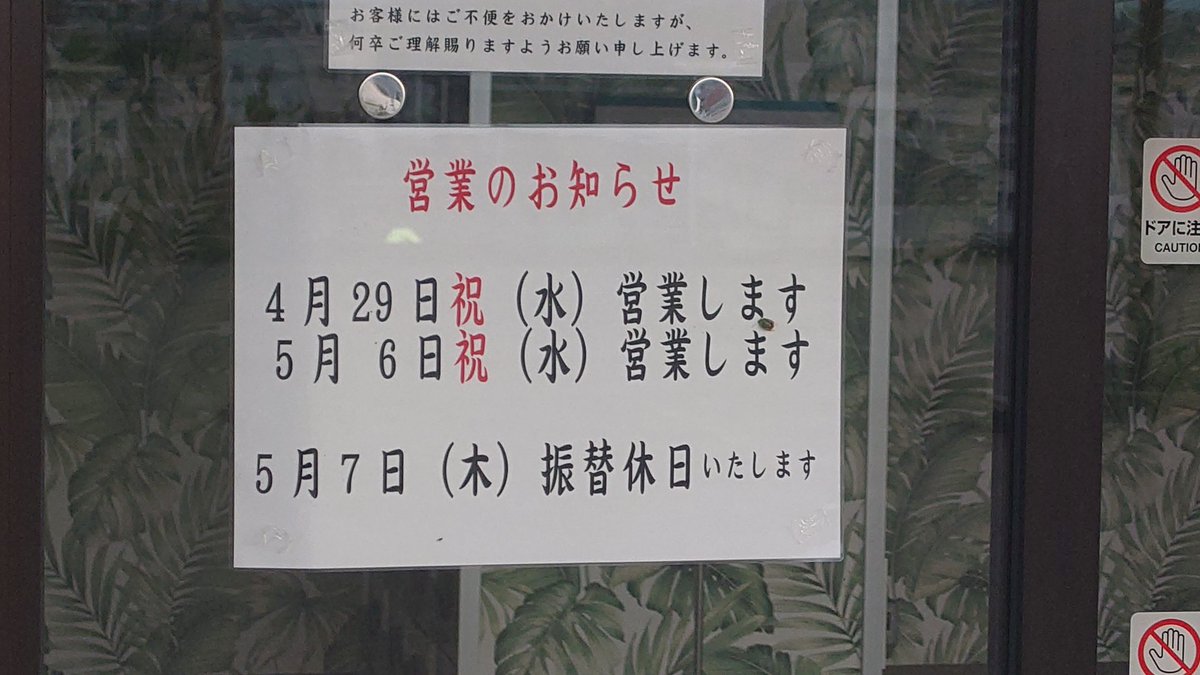 お客様にはご不便をおかけいたしますが、
何卒ご理解賜りますようお願い申し上げます。
営業のお知らせ
4月29日祝（水）営業します
5月 6日祝（水）営業します
5月7日（木）振替休日いたします
ドアに注
CAUTION